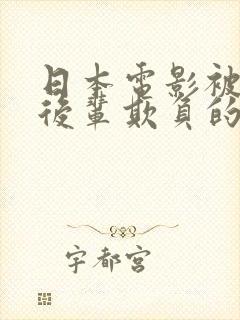 日本電影被
後輩欺負的
宇都宮